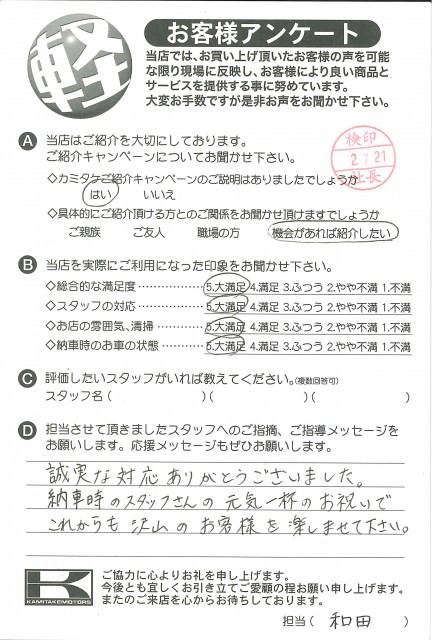 軽
お客様アンケート
当店では、お買い上げ頂いたお客様の声を可能
な限り現場に反映し、お客様により良い商品と
サービスを提供する事に努めています。
大変お手数ですが是非お声をお聞かせ下さい。
検印
2.7.21
社長
A 当店はご紹介を大切にしております。
ご紹介キャンペーンについてお聞かせ下さい。
◇カミタケご紹介キャンペーンのご説明はありましたでしょうか
はい いいえ
◇具体的にご紹介頂ける方とのご関係をお聞かせ頂けますでしょうか
ご親族 ご友人 職場の方 機会があれば紹介したい
B 当店を実際にご利用になった印象をお聞かせ下さい。
◇総合的な満足度‥‥‥‥‥‥ 5.大満足 4.満足 3.ふつう 2.やや不満 1.不満
◇スタッフの対応‥‥‥‥‥‥ 5.大満足 4.満足 3.ふつう 2.やや不満 1.不満
◇お店の雰囲気、清掃‥‥‥‥ 5.大満足 4.満足 3.ふつう 2.やや不満 1.不満
◇納車時のお車の状態‥‥‥‥ 5.大満足 4.満足 3.ふつう 2.やや不満 1.不満
C 評価したいスタッフがいれば教えてください。(複数回答可)
スタッフ名( )( )( )
D 担当させて頂きましたスタッフへのご指摘、ご指導メッセージを
お願いします。応援メッセージもぜひお願いします。
誠実な対応ありがとうございました。
納車時のスタッフさんの元気一杯のお祝いで
これからも沢山のお客様を楽しませて下さい。
K
KAMITAKEMOTORS
ご協力に心よりお礼を申し上げます。
今後とも宜しくお引き立てご愛顧の程お願い申し上げます。
またのご来店を心からお待ちしております。
担当( 和田 )